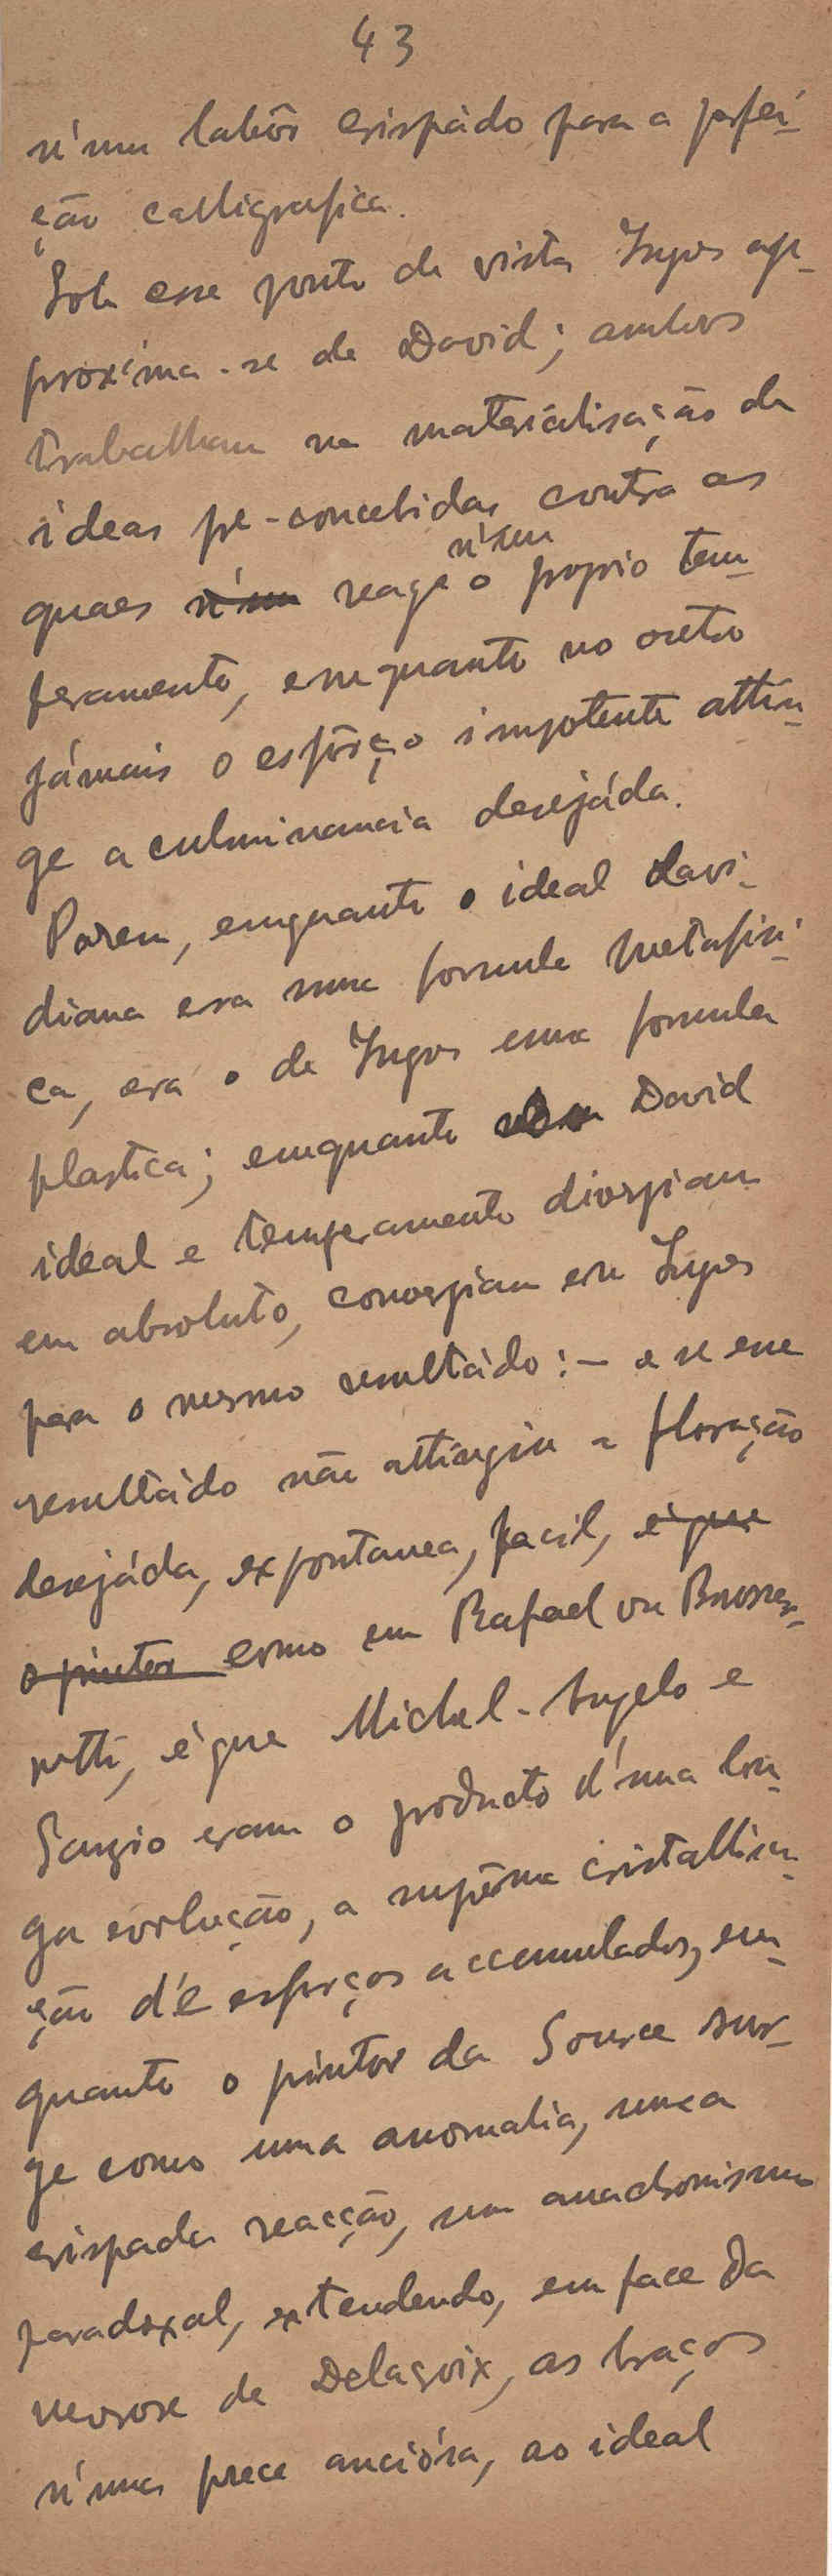 43
n'um labôr crispádo para a perfei-
ção calligrafica.
Sob esse ponto de vista Ingres ap-
proxima-se de David; ambos
trabalham na materialisação de
ideas pre-concebidas contra as
quaes n'um reage o n'um proprio tem-
peramento, emquanto no outro
jámais o esfôrço impotente attin-
ge a culminancia desejáda.
Porem, emquanto o ideal davi-
diano era uma formula metafisi-
ca, era o de Ingres uma formula
plastica; emquanto em David
ideal e temperamento divergiam
em absoluto, convergiam em Ingres
para o mesmo resultádo:— e se esse
resultádo não attingiu a floração
desejáda, expontanea, facil, é que
o pintor como em Rafael ou Buonar-
rotti, é que Michel-Angelo e
Sanzio eram o producto d'uma lon-
ga evolução, a suprêma cristallisa-
ção d'e esforços accumulados, em-
quanto o pintor da Source sur-
ge como uma anomalia, uma
crispada reacção, um anachronismo
paradoxal, extendendo, em face da
nevrose de Delacroix, os braços
n'uma prece anciósa, ao ideal